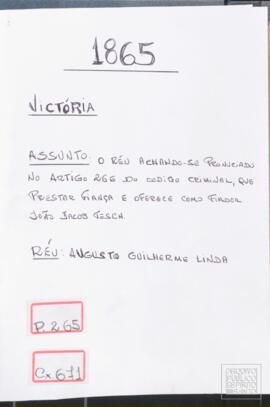 1865
VICTÓRIA
ASSUNTO: O RÉU ACHANDO-SE PRONUCIADO
NO ARTIGO 266 DO CODIGO CRIMINAL, QUE
PRESTAR FIANÇA E OFERECE COMO FIADOR
JOÃO JACOB TESCH.
RÉU: AUGUSTO GUILHERME LINDA
P. 265
Cx. 671
ARQUIVO
PÚBLICO
ESPÍRITO
SANTO